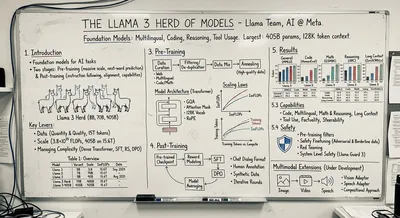 THE LLAMA 3 HERD OF MODELS - Llama Team, AI @ Meta.
Foundation Models: Multilingual, Coding, Reasoning, Tool Usage. Largest: 405B params, 128K token context.
1. Introduction
• Foundation models for AI tasks
• Two stages: Pre-training (massive scale, next-word prediction)
& Post-training (instruction following, alignment, capabilities)
Llama 3 Herd (8B, 70B, 405B)
Key Levers
• Data (Quantity & Quality, 15T tokens)
• Managing Complexity (Dense Transformer, SFT, RS, DPO)
Table 1: Overview
3. Pre-Training
Data Curation
Filtering/De-duplication
Data Mix
Annealing
(high-quality data)
• Web
• Multilingual
• Code/Math
Model Architecture (Transformer)
• GQA
• Attention Mask
• 128K Vocab
• RoPE
Scaling Laws
Training Tokens vs Compute
4. Post-Training
Pre-trained Checkpoint
Reward Modeling
SFT
DPO
Model Averaging
• Chat Dialog Format
• Human Annotations
• Synthetic Data
• Iterative Rounds
5. Results
General
Code
Math
Reasoning
Long Context
5.3 Capabilities
• Code, Multilingual, Math & Reasoning, Long Context
• Tool Use, Factuality, Steerability
5.4 Safety
• Pre-training filters
• Safety Finetuning (Adversarial & Borderline data)
• Red Teaming
• System Level Safety (Llama Guard 3)
Multimodal Extensions (Under Development)
Image
Video
Speech
• Vision Adapter
• Speech Adapter
• Compositional Approach